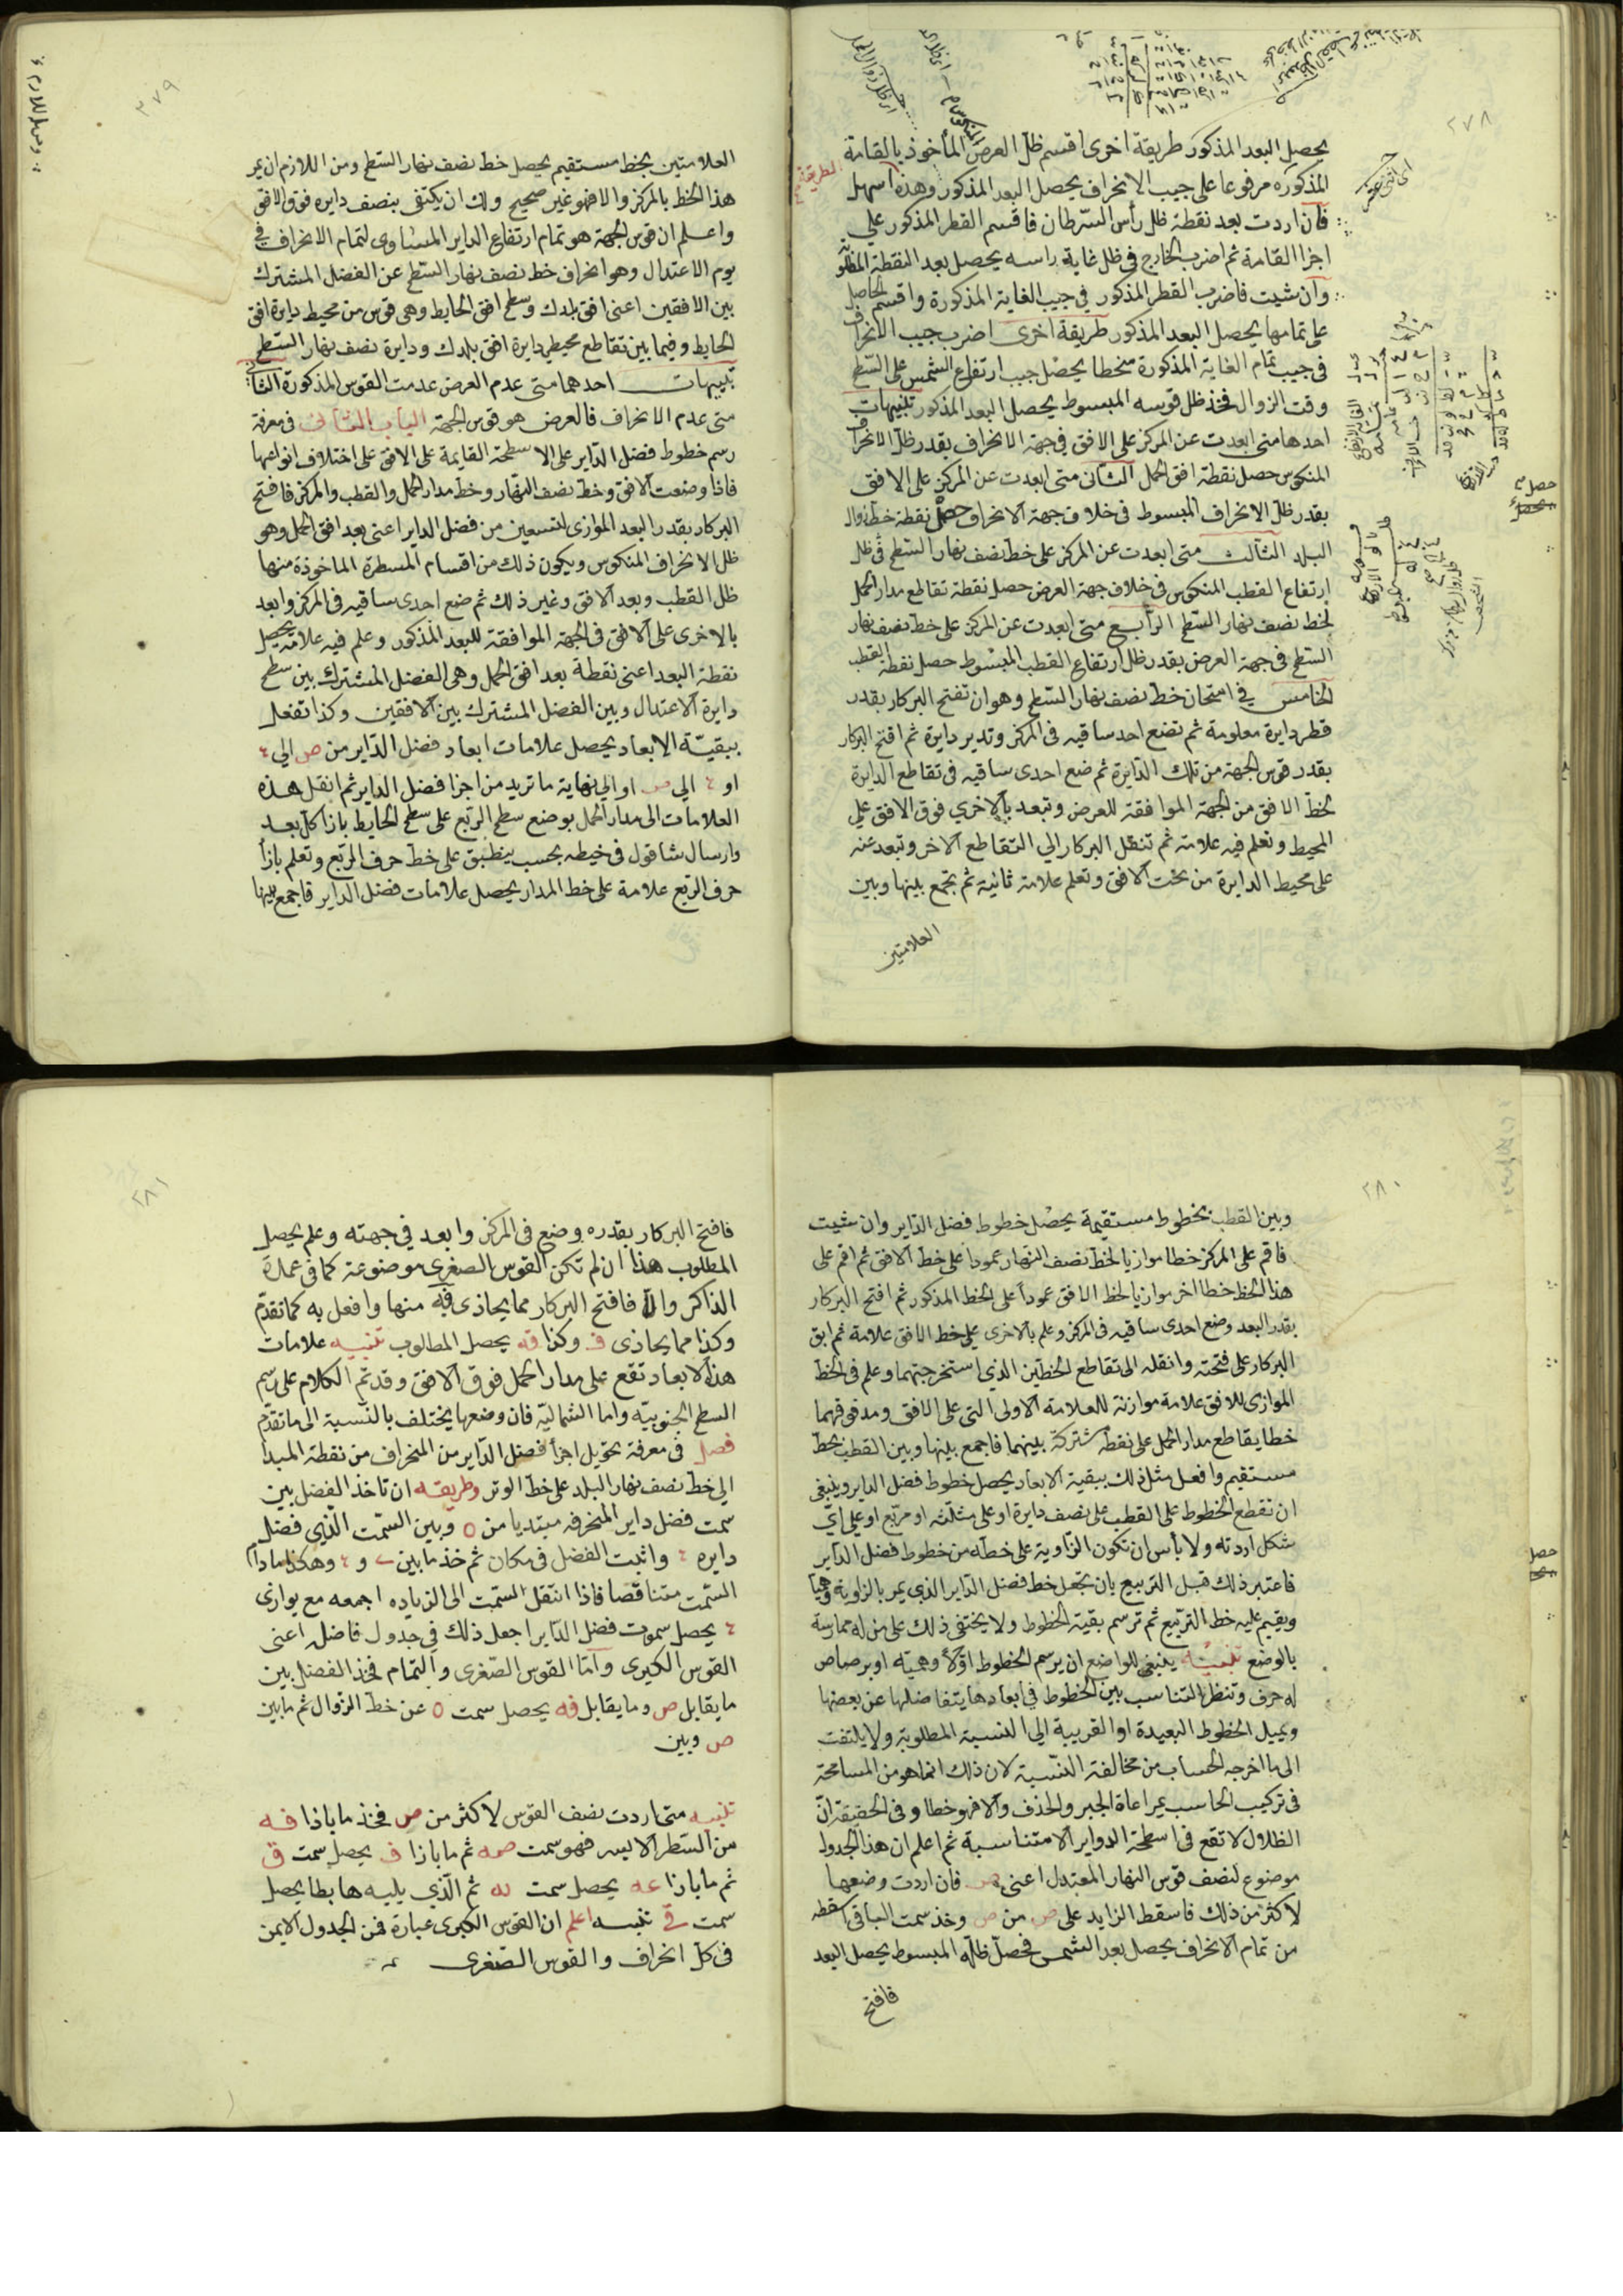 ٢٧٨
يحصل البعد المذكور طريقة اخرى اقسم ظل العرض المأخوذ بالقامة
المذكوره مرفوعا على جيب الانحراف يحصل البعد المذكور وهذه اسهل
الطريقة
فان اردت بعد نقطة ظل رأس السرطان فاقسم القطر المذكور على
اجزا القامة ثم اضرب الخارج فى ظل غاية راسه يحصل بعد النقطة المطلوبة
وان شيت فاضرب القطر المذكور في جيب الغاية المذكورة واقسم الحاصل
على تمامها يحصل البعد المذكور طريقة اخرى اضرب جيب الانحراف
فى جيب تمام الغاية المذكورة منحطا يحصل جيب ارتفاع الشمس على السطح
وقت الزوال فخذ ظل قوسه المبسوط يحصل البعد المذكور تنبيهات
احدها متى ابعدت عن المركز على الافق في جهة الانحراف بقدر ظل الانحراف
المنكوس حصل نقطة افق الحمل الثانى متى ابعدت عن المركز على الافق
بقدر ظل الانحراف المبسوط فى خلاف جهة الانحراف حصل نقطة خط زوال
البلد الثالث متى ابعدت عن المركز على خط نصف نهار السطح فى ظل
ارتفاع القطب المنكوس فى خلاف جهة العرض حصل نقطة تقاطع مدار الحمل
لخط نصف نهار السطح الرابع متى ابعدت عن المركز على خط نصف نهار
السطح فى جهة العرض بقدر ظل ارتفاع القطب المبسوط حصل نقطة القطب
الخامس في امتحان خط نصف نهار السطح وهو ان تفتح البركار بقدر
قطر دايرة معلومة ثم تضع احد ساقيه فى المركز وتدير دايرة ثم افتح البركار
بقدر قوس الجهة من تلك الدايرة ثم ضع احدى ساقيه فى تقاطع الدايرة
لخط الافق من الجهة الموافقة للعرض وتبعد بالاخري فوق الافق على
المحيط وتعلم فيه علامة ثم تنقل البركار الي التقاطع الاخر وتبعد عنه
على محيط الدايرة من تحت الافق وتعلم علامة ثانية ثم تجمع بينها وبين
العلامتين
٢٧٩
العلامتين بخط مستقيم يحصل خط نصف نهار السطح ومن اللازم ان يمر
هذا الخط بالمركز والا فهو غير صحيح ولك ان تكتفى بنصف دايره فوق الافق
واعلم ان قوس الجهة هو تمام ارتفاع الداير المساوى لتمام الانحراف في
يوم الاعتدال وهو انحراف خط نصف نهار السطح عن الفضل المشترك
بين الافقين اعنى افق بلدك وسطح افق الحايط وهى قوس من محيط دايرة افق
الحايط وفيما بين تقاطع محيطى دايرة افق بلدك ودايرة نصف نهار السطح
تنبيهات احدهما متى عدم العرض عدمت القوس المذكورة الثانى
متى عدم الانحراف فالعرض هو قوس الجهة الباب الثانى فى معرفة
رسم خطوط فضل الداير على الاسطحة القايمة على الافق على اختلاف انواعها
فاذا وضعت الافق وخط نصف النهار وخط مدار الحمل والقطب والمركز فافتح
البركار بقدر البعد الموازى لتسعين من فضل الداير اعنى بعد افق الحمل وهو
ظل الانحراف المنكوس ويكون ذلك من اقسام المسطرة الماخوذة منها
ظل القطب وبعد الافق وغير ذلك ثم ضع احدى ساقيه فى المركز وابعد
بالاخرى على الافق فى الجهة الموافقة للبعد المذكور وعلم فيه علامة يحصل
نقطة البعد اعنى نقطة بعد افق الحمل وهى الفضل المشترك بين سطح
دايرة الاعتدال وبين الفضل المشترك بين الافقين وكذا تفعل
ببقية الابعاد يحصل علامات ابعاد فضل الداير من ص الي ٤
او ٤ الي ص او الي نهاية ما تريد من اجزا فضل الداير ثم انقل هذه
العلامات الى مدار الحمل بوضع سطح الربع على سطح الحايط بازا كل بعد
وارسال شاقول فى خيطه بحسب ينطبق على خط حرف المربع وتعلم بازأ
حرف الربع علامة على خط المدار يحصل علامات فضل الداير فاجمع بينها
٢٨٠
وبين القطب بخطوط مستقيمة يحصل خطوط فضل الداير وان شيت
فاقم على المركز خطا موازيا لخط نصف النهار عمودا على خط الافق ثم اقم على
هذا الخط خطا اخر موازيا لخط الافق عموداً على الخط المذكور ثم افتح البركار
بقدر البعد وضع احدى ساقيه فى المركز وعلم بالاخرى على خط الافق علامة ثم ابق
البركار على فتحته وانقله الى تقاطع الخطين الذي استخرجتهما وعلم فى الخط
الموازى للافق علامة موازنة للعلامة الاولى التى على الافق ومد فوقهما
خطا يقاطع مدار الحمل على نقطة مشتركة بينهما فاجمع بينها وبين القطب بخط
مستقيم وافعل مثل ذلك ببقية الابعاد يحصل خطوط فضل الداير وينبغى
ان تقطع الخطوط على القطب على نصف دايرة او على مثلثة او مربع او على اي
شكل اردته ولا بأس ان تكون الزاوية على خطه من خطوط فضل الداير
فاعتبر ذلك قبل التربيع بان تجعل خط فضل الداير الذي يمر بالزاوية وهميا
ويقيم عليه خط التربيع ثم ترسم بقية الخطوط ولا يختفى ذلك على من له ممارسة
بالوضع تنبيه ينبغى للواضع ان يرسم الخطوط اولاً وهمية او برصاص
له حرف وتنظر التناسب بين الخطوط في ابعادها يتفاضلها عن بعضها
ويميل الخطوط البعيدة او القريبة الي النسبة المطلوبة ولا يلتفت
الى ما اخرجه الحساب من مخالفة النسبة لان ذلك انما هو من المسامحة
فى تركيب الحاسب بمراعاة الجبر والحذف والا فهو خطا وفى الحقيقة ان
الظلال لا تقع فى اسطحة الدواير الا متناسبة ثم اعلم ان هذا الجدول
موضوع لنصف قوس النهار المعتدل اعنى ص فان اردت وضعها
لاكثر من ذلك فاسقط الزايد على ص من ص وخذ سمت الباقى اسقطه
من تمام الانحراف يحصل بعد الشمس فحصل ظله المبسوط يحصل البعد
فافتح
٢٨١
فافتح البركار بقدره وضع فى المركز وابعد في جهته وعلم يحصل
المطلوب هذا ان لم تكن القوس الصغرى موضوعة كما فى عمل
الذاكر والا فافتح البركار مما يحاذى فه منها وافعل به كما تقدم
وكذا مما يحاذى ف وكذا فه يحصل المطلوب تنبيه علامات
هذه الابعاد تقع على مدار الحمل فوق الافق وقد تم الكلام على رسم
السطح الجنوبية واما الشمالية فان وضعها يختلف بالنسبة الى ما تقدم
فصل فى معرفة تحويل اجزأ فضل الداير من المنحراف من نقطة المبدا
الي خط نصف نهار البلد على خط الوتر وطريقه ان تاخذ الفضل بين
سمت فضل داير المنحرفه مبتديا من ٥ وبين السمت الذي فضل
دايره ٤ واثبت الفضل فى مكان ثم خذ ما بين و ٤ وهكذا مادام
السمت متناقصا فاذا انتقل السمت الى الزياده اجمعه مع يوازى
٤ يحصل سموت فضل الداير اجعل ذلك فى جدول فاضل اعنى
القوس الكبرى وامّا القوس الصغرى والتمام فخذ الفضل بين
ما يقابل ص وما يقابل فه يحصل سمت ٥ عن خط الزوال ثم ما بين
ص وبين
تنبيه متى اردت نصف القوس لاكثر من ص فخذ ما باذا فه
من السطر الايسر فهو سمت صه ثم ما بازا ف يحصل سمت ق
ثم ما بازا عه يحصل سمت قه ثم الذي يليه هابطا يحصل
سمت قى تنبيه اعلم ان القوس الكبرى عبارة فمن الجدول الايمن
فى كل انحراف والقوس الصغرى